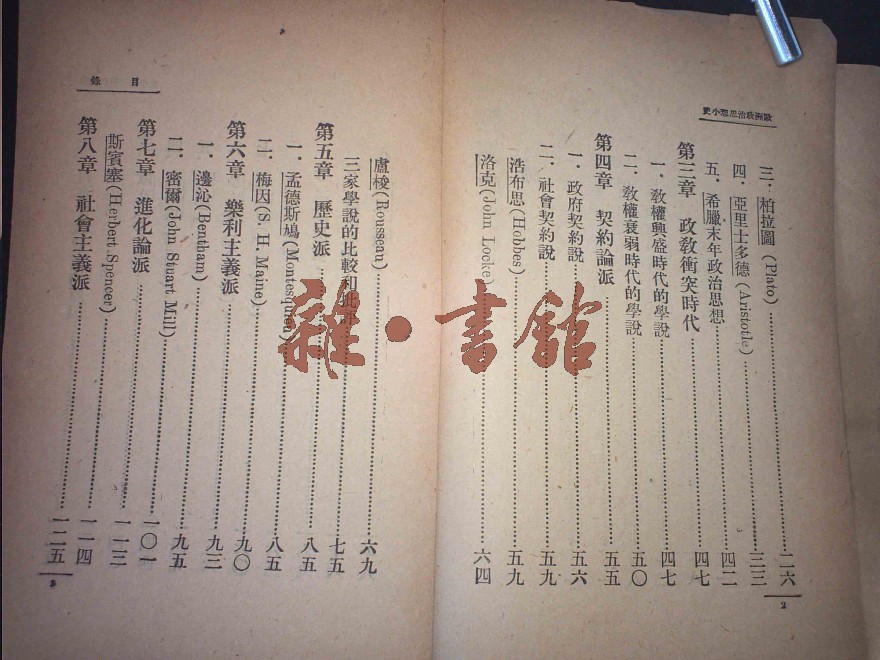 歐洲政治思想小史
三．柏拉圖 (Plato)……二六
四．亞里士多德 (Aristotle)……三三
五．希臘末年政治思想……四二
第三章　政敎衝突時代……四七
一．敎權興盛時代的學說……四七
二．敎權衰弱時代的學說……五〇
第四章　契約論派……五五
一．政府契約說……五六
二．社會契約說……五九
浩布思 (Hobbes)……五九
洛克 (John Locke)……六四
2
目錄
盧梭 (Rousseau)……六九
三家學說的比較和批評……七五
第五章　歷史派……八五
一．孟德斯鳩 (Montesquieu)……八五
二．梅因 (S. H. Maine)……九〇
第六章　樂利主義派……九〇
一．邊沁 (Bentham)……九三
二．密爾 (John Stuart Mill)……九五
第七章　進化論派……一〇一
斯賓塞 (Herbert Spencer)……一一三
第八章　社會主義派……一一四
一二五
3
雜·書館